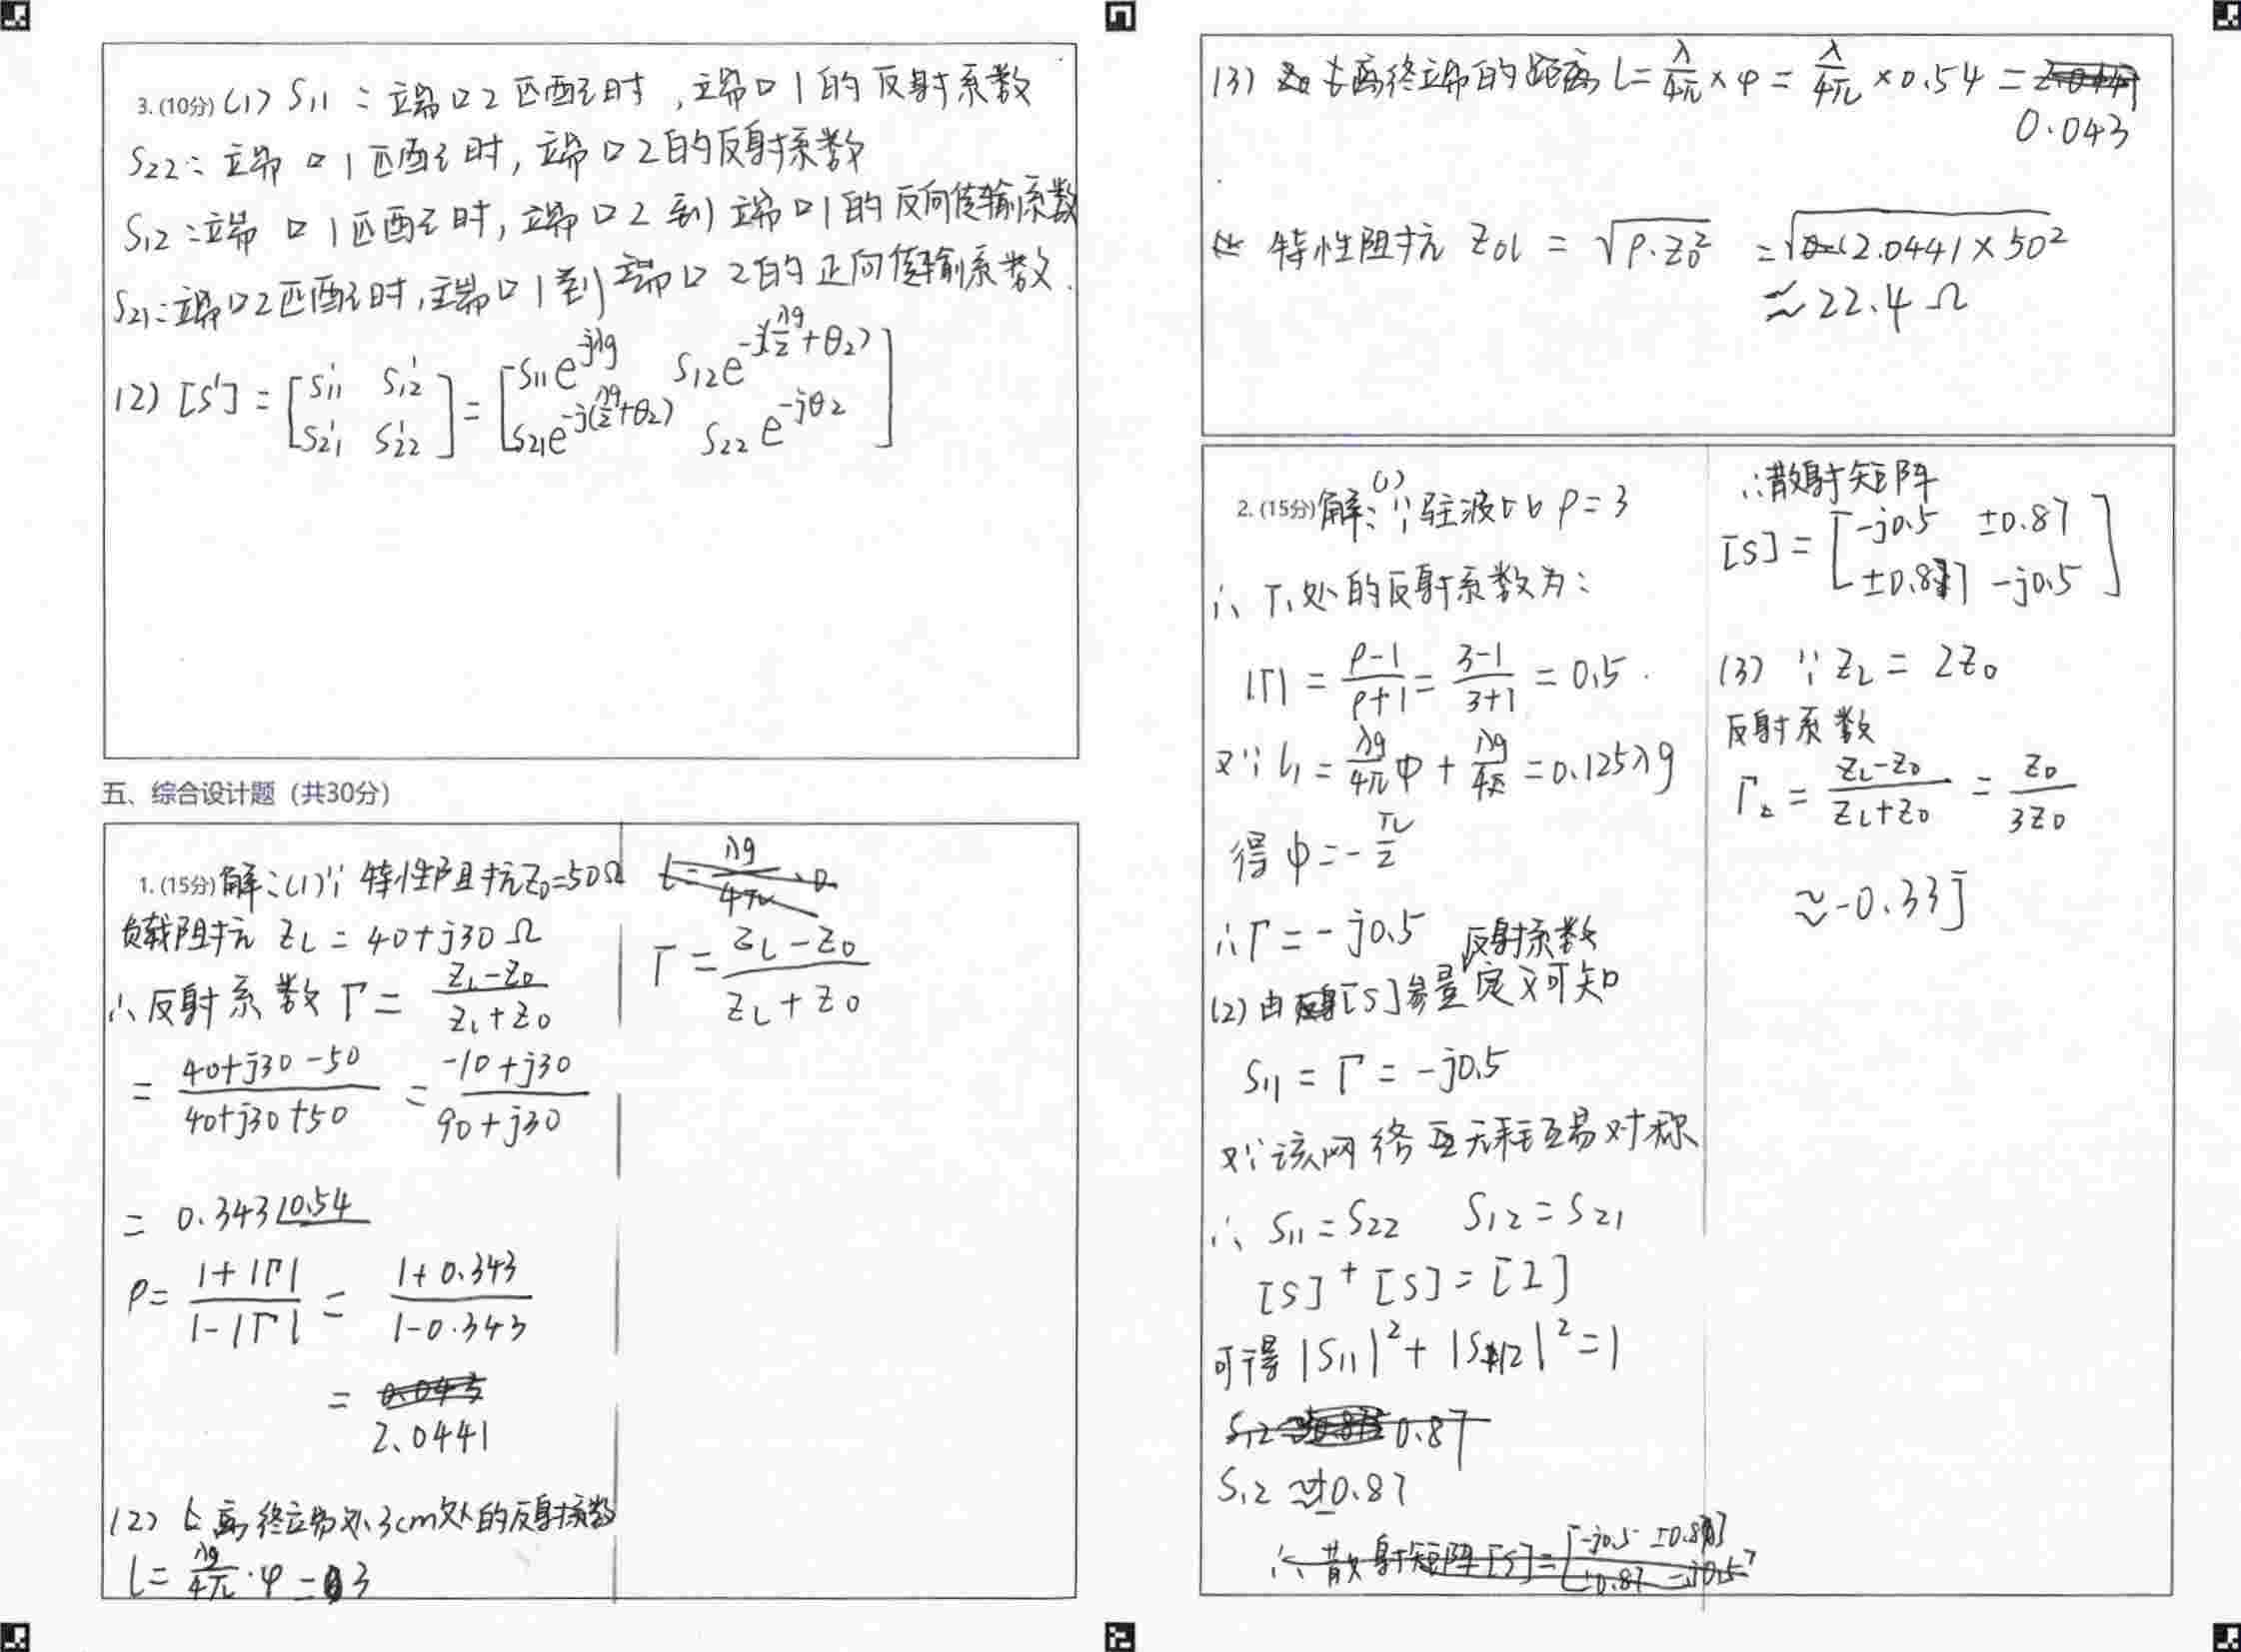 3. (10分) (1) S11: 端口2匹配时,端口1的反射系数
S22: 端口1匹配时,端口2的反射系数
S12: 端口1匹配时,端口2到端口1的反向传输系数
S21: 端口2匹配时,端口1到端口2的正向传输系数.
(2) [S'] = [S'11 S'12; S'21 S'22] = [S11e^{-jλg} S12e^{-j(λg/2+θ2)}; S21e^{-j(λg/2+θ2)} S22e^{-jθ2}]
五、综合设计题(共30分)
1. (15分) 解:(1)∵特性阻抗Z0=50Ω
负载阻抗 ZL = 40+j30 Ω
∴反射系数 Γ = (ZL-Z0)/(ZL+Z0)
= (40+j30-50)/(40+j30+50) = (-10+j30)/(90+j30)
= 0.343∠0.54
ρ = (1+|Γ|)/(1-|Γ|) = (1+0.343)/(1-0.343)
= 2.0441
(2) 离终端外3cm处的反射系数
l = λg/4π · φ = 3
Γ = (ZL-Z0)/(ZL+Z0)
(3) 离终端的距离 l = λ/4π × φ = λ/4π × 0.54 =
0.043
特性阻抗 Z01 = √(ρ·Z0²) = √(2.0441×50²)
≈ 22.4 Ω
2. (15分) 解:(1)∵驻波比 ρ=3
∴ T1处的反射系数为:
|Γ| = (ρ-1)/(ρ+1) = (3-1)/(3+1) = 0.5.
又∵ l1 = λg/4π φ + λg/4 = 0.125λg
得 φ = -π/2
∴Γ = -j0.5
(2) 由[S]参量反射系数定义可知
S11 = Γ = -j0.5
又∵该网络无耗互易对称
∴ S11 = S22 S12 = S21
[S]⁺[S] = [I]
可得 |S11|² + |S12|² = 1
S12 ≈ ±0.87
∴散射矩阵
[S] = [-j0.5 ±0.87; ±0.87 -j0.5]
(3) ∵ ZL = 2Z0
反射系数
Γ2 = (ZL-Z0)/(ZL+Z0) = Z0/3Z0
≈ -0.33j